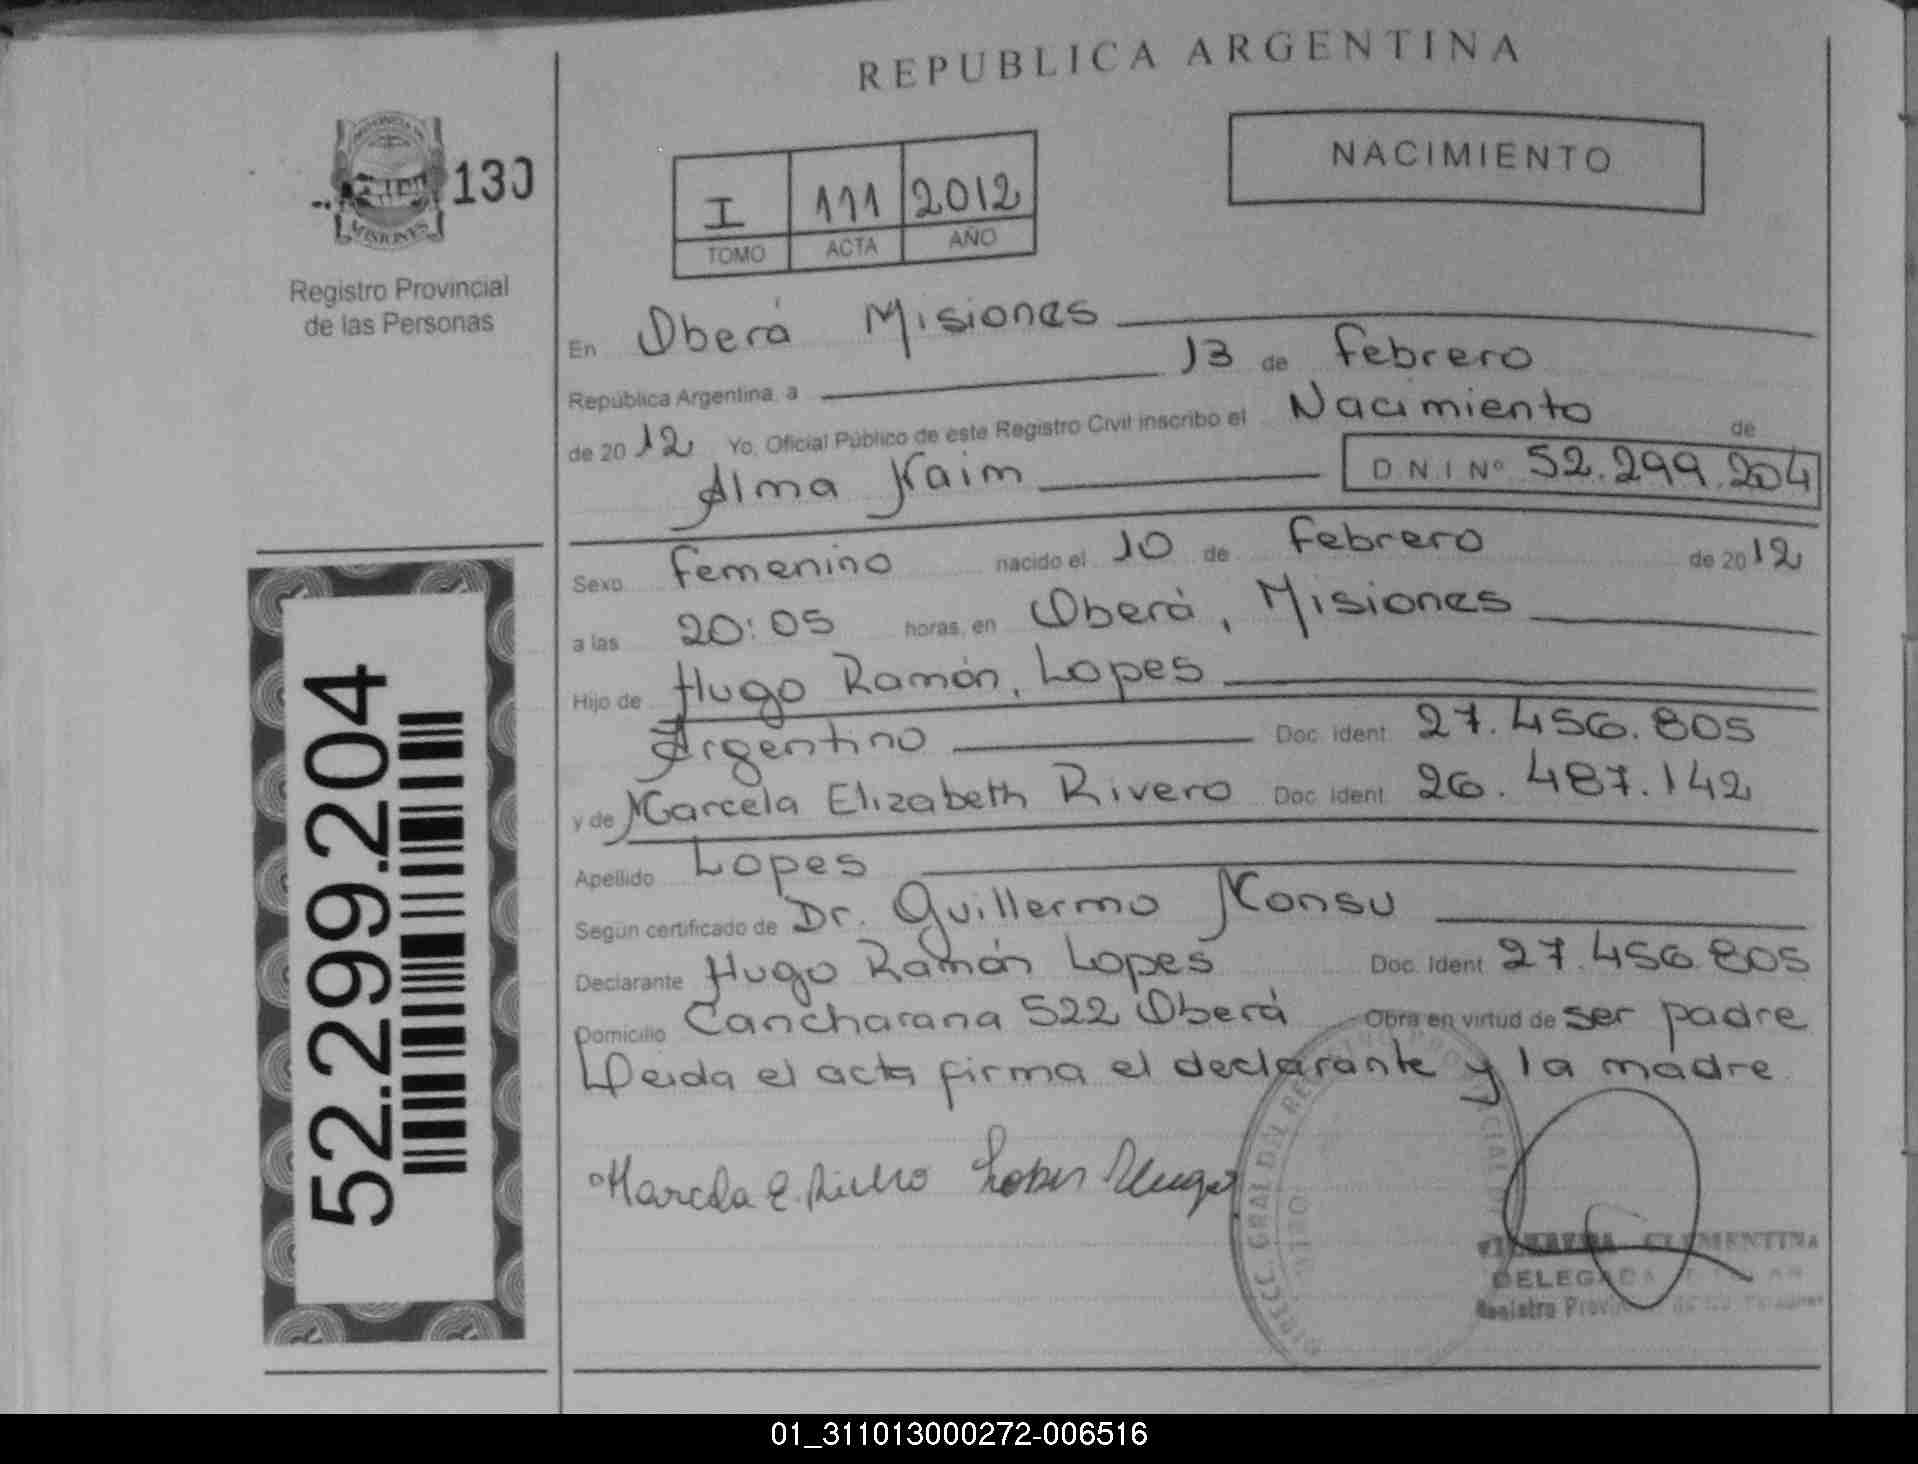 REPUBLICA ARGENTINA
NACIMIENTO
PROVINCIA DE
MISIONES
130
Registro Provincial
de las Personas
I 111 2012
TOMO ACTA AÑO
En Oberá Misiones
República Argentina, a 13 de Febrero
de 2012 Yo, Oficial Público de este Registro Civil inscribo el Nacimiento de
Alma Naim D N I Nº 52.299.204
Sexo Femenino nacido el 10 de Febrero de 2012
a las 20:05 horas, en Oberá, Misiones
Hijo de Hugo Ramón, Lopes
Argentino Doc. Ident. 27.456.805
y de Marcela Elizabeth Rivero Doc. Ident. 26.487.142
Apellido Lopes
Según certificado de Dr. Guillermo Monsu
Declarante Hugo Ramón Lopes Doc. Ident. 27.456.805
Domicilio Cancharana 522 Oberá Obra en virtud de ser padre
Leida el acta firma el declarante y la madre
Marcela E. Rivero Lopes Hugo
CLEMENTINA
DELEGADA
Registro
52.299.204
01_311013000272-006516